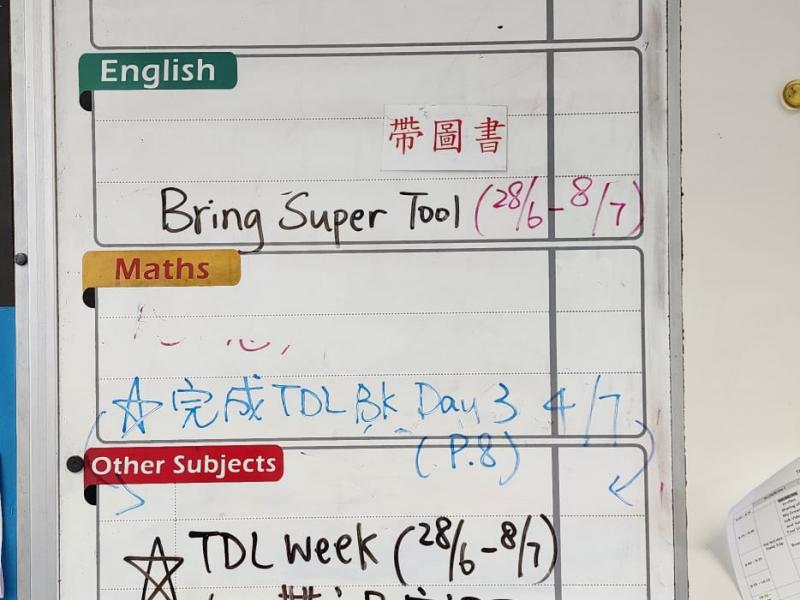 English
帶圖書
Bring Super Tool (28/6 - 8/7)
Maths
☆ 完成 TDL Bk Day 3 4/7
(P.8)
Other Subjects
☆ TDL week (28/6 - 8/7)